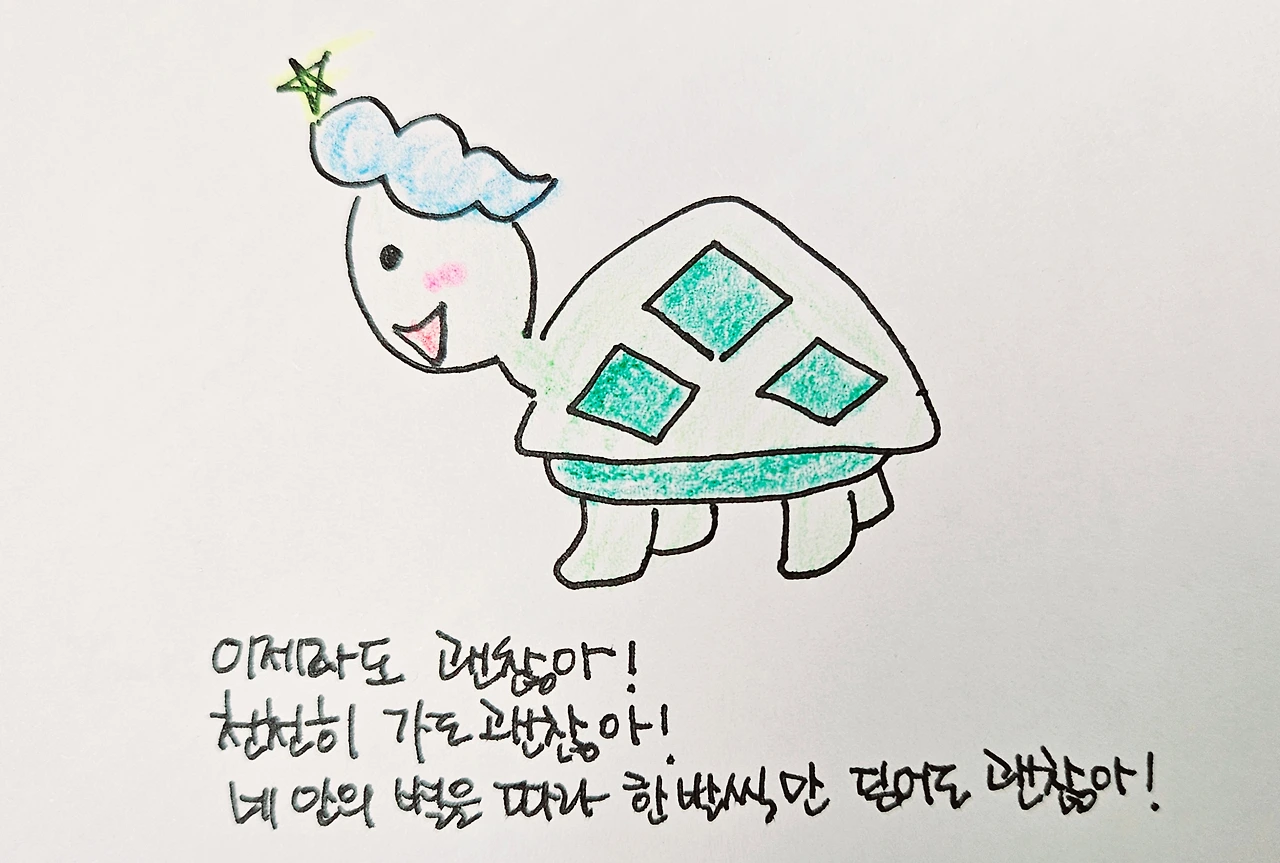 이제라도 괜찮아!
천천히 가도 괜찮아!
네 안의 별을 따라 한 발씩만 딛어도 괜찮아!